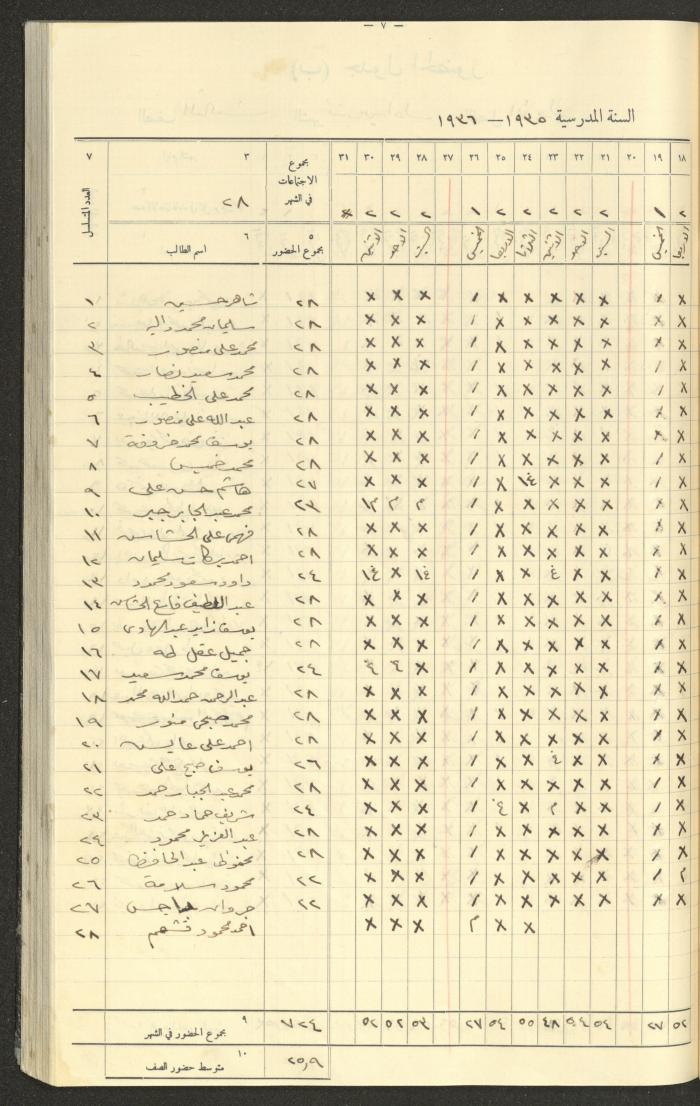 — ٧ —
السنة المدرسية ١٩٣٥ — ١٩٣٦
٧ ٣ مجموع الاجتماعات في الشهر ٣١ ٣٠ ٢٩ ٢٨ ٢٧ ٢٦ ٢٥ ٢٤ ٢٣ ٢٢ ٢١ ٢٠ ١٩ ١٨
العدد المتسلسل ٢٨ x ٢ ٢ ٢ ١ ٢ ٢ ٢ ٢ ٢ ١ ٢
٦ اسم الطالب ٥ مجموع الحضور الاثنين الاحد السبت الخميس الاربعا الثلاثا الاثنين الاحد السبت الخميس الاربعا
١ شاهر حسين ٢٨ x x x / x x x x x x x
٢ سليمان محمد ٢٨ x x x / x x x x x x x
٣ محمد علي منصور ٢٨ x x x / x x x x x / x
٤ محمد سعيد نصار ٢٨ x x x / x x x x x / x
٥ محمد علي الخطيب ٢٨ x x x / x x x x x / x
٦ عبد الله علي منصور ٢٨ x x x / x x x x x x x
٧ يوسف محمد ٢٨ x x x / x x x x x x x
٨ محمد خميس ٢٨ x x x / x x x x x / x
٩ هاشم حسن علي ٢٧ x x x / x ١غ x x x / x
١٠ محمد عبد الجابر جبر ٢٣ ١م م م / x x x x x x x
١١ فهمي علي ٢٨ x x x / x x x x x / x
١٢ احمد بركات سليمان ٢٨ x x x / x x x x x x x
١٣ داود سعود محمود ٢٤ ١غ x ١غ / x x غ x x x x
١٤ عبد اللطيف ٢٨ x x x / x x x x x / x
١٥ يوسف زايد عبد الهادي ٢٨ x x x / x x x x x / x
١٦ جميل عقل طه ٢٨ x x x / x x x x x x x
١٧ يوسف محمد سعيد ٢٤ غ غ x / x x x x x / x
١٨ عبد الرحمن حمد الله محمد ٢٨ x x x / x x x x x x x
١٩ محمد صبحي منور ٢٨ x x x / x x x x x x x
٢٠ احمد علي ٢٨ x x x / x x x x x x x
٢١ يوسف علي ٢٦ x x x / x x غ x x / x
٢٢ محمد عبد الجبار حمد ٢٨ x x x / x x x x x / x
٢٣ شريف حماد حمد ٢٤ x x x / غ x م x x / x
٢٤ عبد العزيز محمود ٢٨ x x x / x x x x x x x
٢٥ محفوظ عبد الحافظ ٢٨ x x x / x x x x x / x
٢٦ محمود سلامة ٢٢ x x x / x x x x x / م
٢٧ مروان ٢٢ x x x / x x x x x x x
٢٨ احمد محمود x x x م x x
٩ مجموع الحضور في الشهر ٧٢٤ ٥٢ ٥٢ ٥٣ ٢٧ ٥٤ ٥٥ ٤٨ ٥٤ ٥٤ ٢٧ ٥٢
١٠ متوسط حضور الصف ٢٥,٩